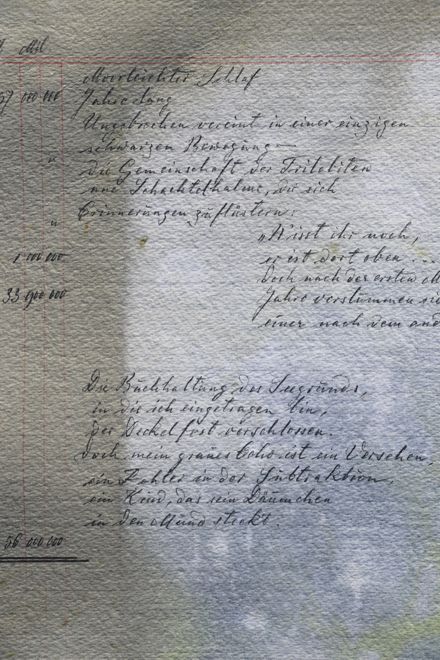 Mill
Meerleichter Schlaf
57 000 000 Jahre lang
Ungebrochen vereint in einer einzigen
schwarzen Bewegung —
" die Gemeinschaft der Trilobiten
und Schachtelhalme, die sich
" Erinnerungen zuflüstern:
"Wisst ihr noch,
1 000 000 er ist dort oben ...
Doch nach der ersten M
33 900 000 Jahre verstummen sie
einer nach dem and
Die Buchhaltung des Seegrunds,
in die ich eingetragen bin,
der Deckel fest verschlossen.
Doch mein graues Echo ist ein Versehen,
ein Fehler in der Subtraktion,
ein Kind, das sein Däumchen
in den Mund steckt.
56 000 000